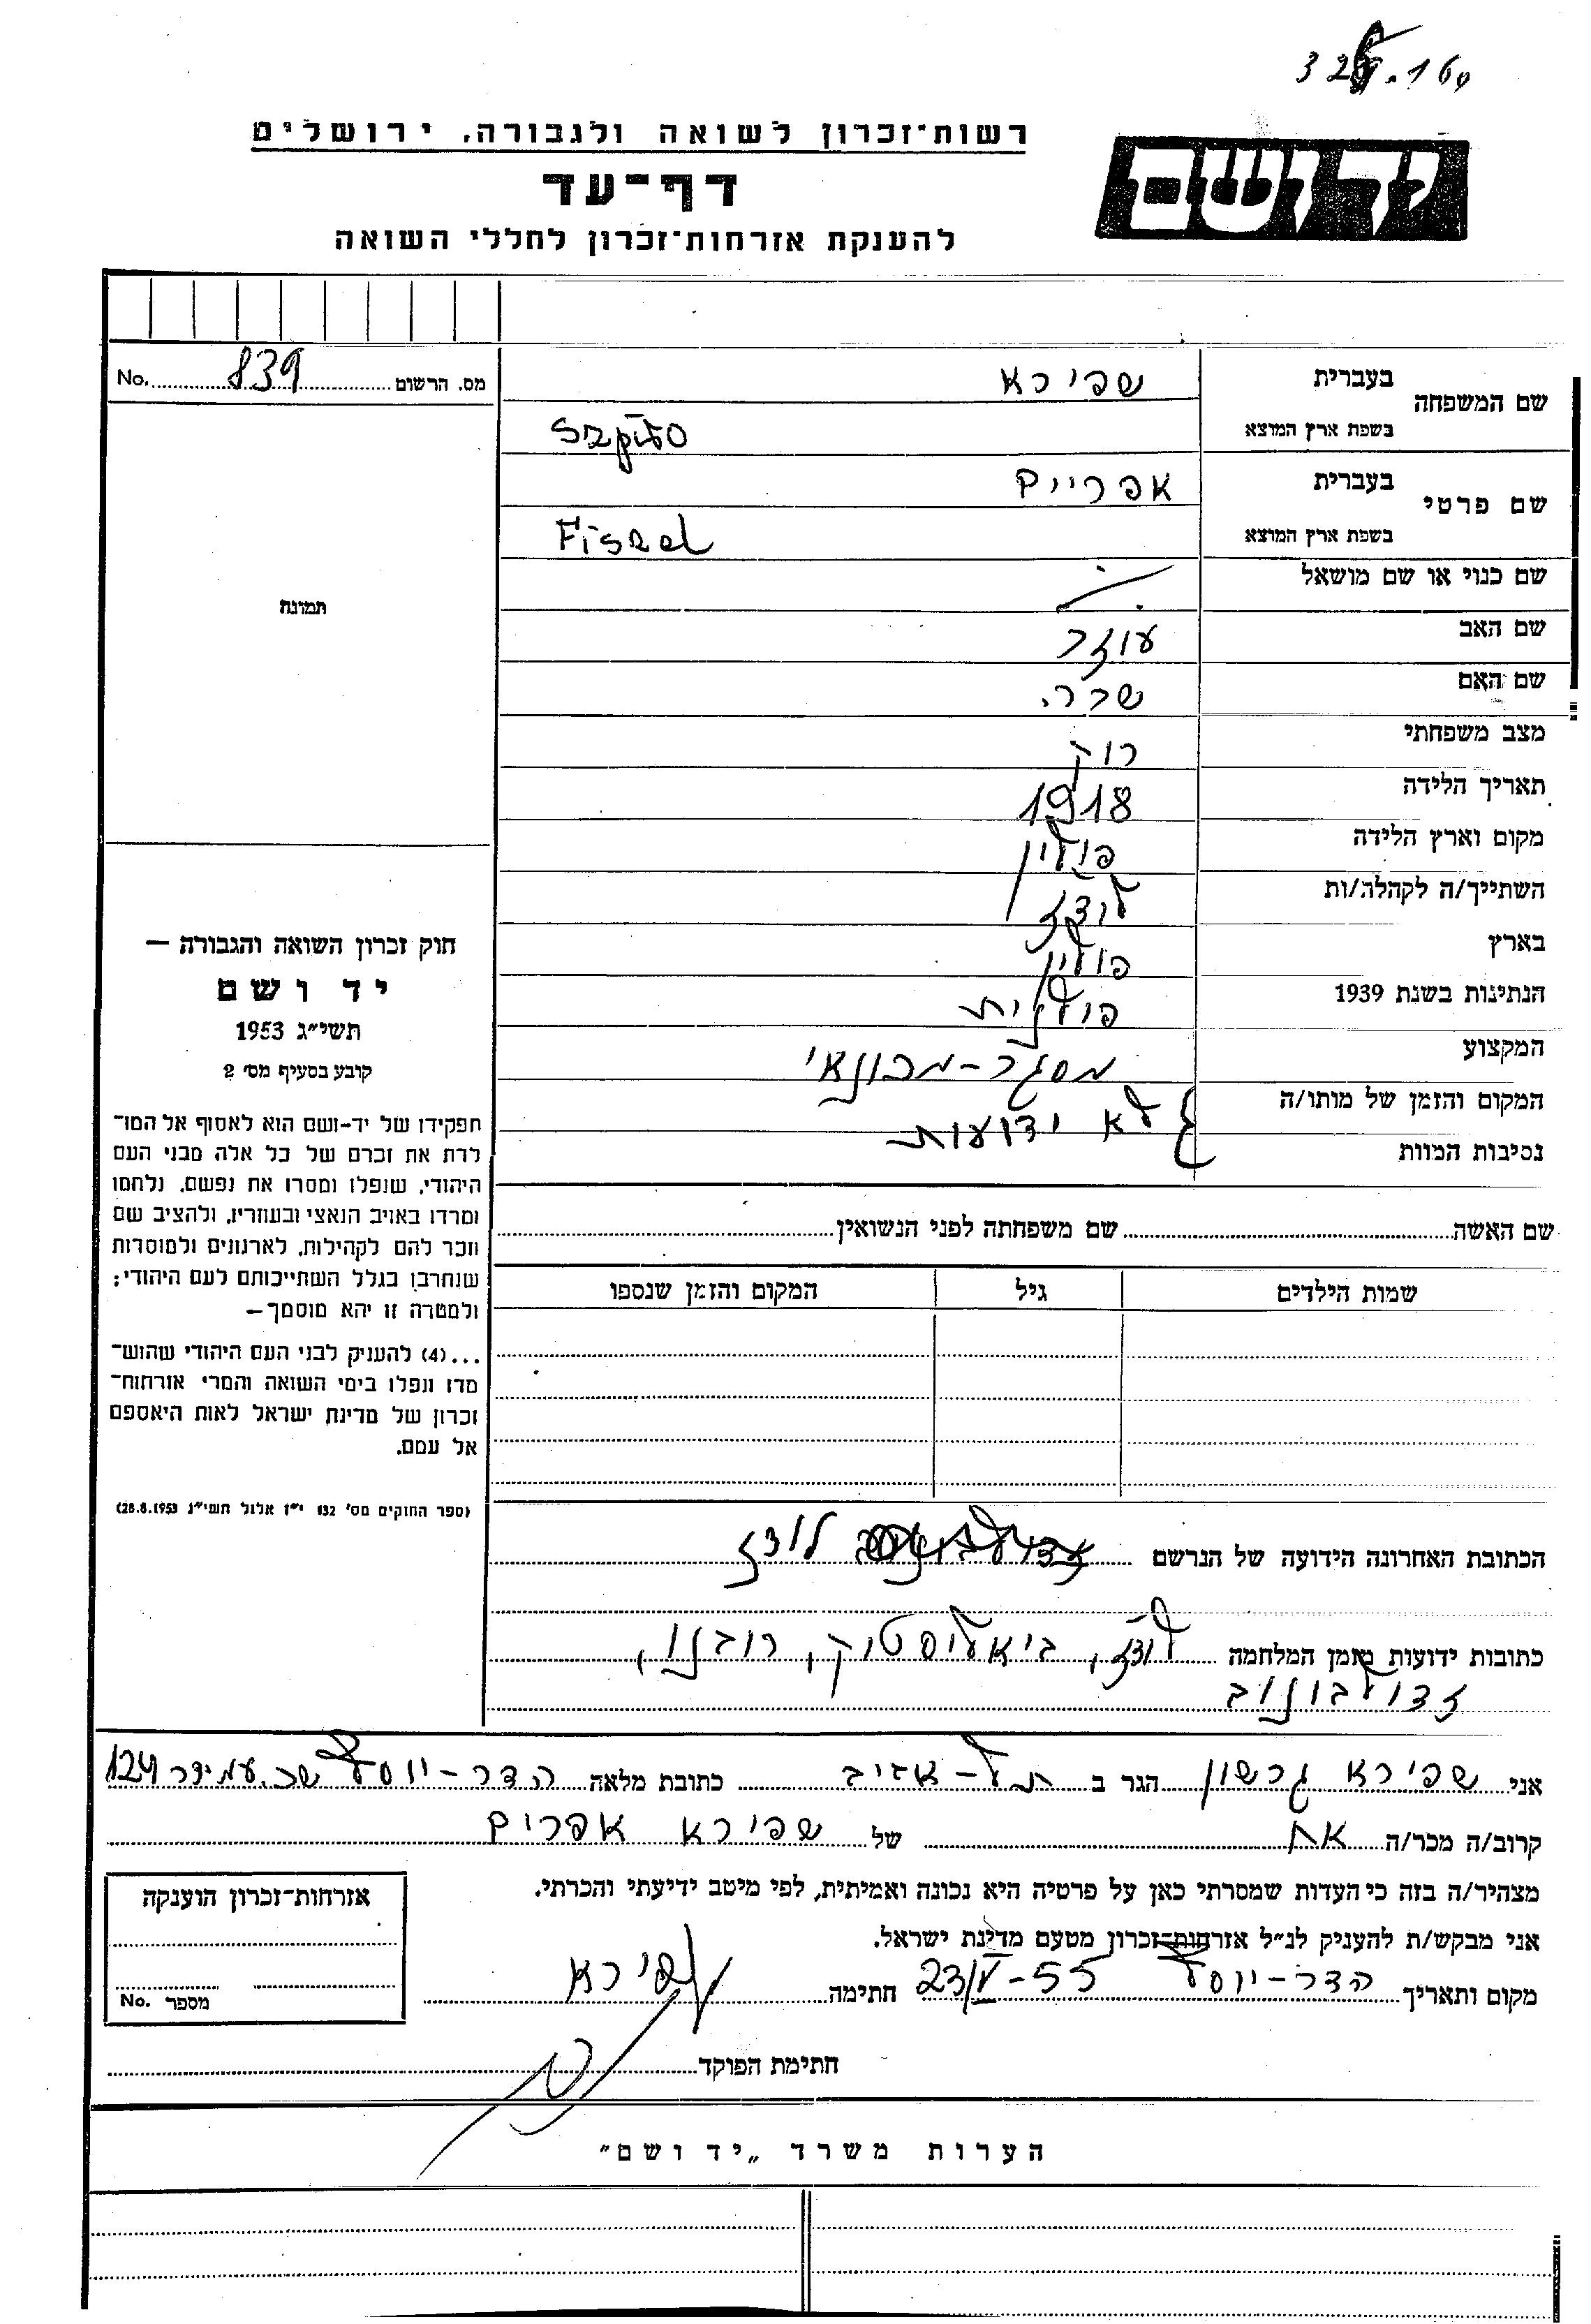 328.160
רשות־זכרון לשואה ולגבורה, ירושלים
יד ושם
דף־עד
להענקת אזרחות־זכרון לחללי השואה
מס. הרשום 839 No.
שם המשפחה
בעברית שפירא
בשפת ארץ המוצא Szpiro
שם פרטי
בעברית אפריים
בשפת ארץ המוצא Fiszel
שם כנוי או שם מושאל
שם האב עוזר
שם האם שרה
מצב משפחתי רוק
תאריך הלידה 1918
מקום וארץ הלידה פולין
השתייך/ה לקהלה/ות לודז
בארץ פולין
הנתינות בשנת 1939 פולנית
המקצוע מסגר-מכונאי
המקום והזמן של מותו/ה
נסיבות המוות
לא ידועות
תמונה
חוק זכרון השואה והגבורה —
יד ושם
תשי״ג 1953
קובע בסעיף מס׳ 2
תפקידו של יד-ושם הוא לאסוף אל המו־
לדת את זכרם של כל אלה מבני העם
היהודי, שנפלו ומסרו את נפשם, נלחמו
ומרדו באויב הנאצי ובעוזריו, ולהציב שם
וזכר להם לקהילות, לארגונים ולמוסדות
שנחרבו בגלל השתייכותם לעם היהודי;
ולמטרה זו יהא מוסמך—
...(4) להעניק לבני העם היהודי שהוש־
מדו ונפלו בימי השואה והמרי אזרחות־
זכרון של מדינת ישראל לאות היאספם
אל עמם.
(ספר החוקים מס׳ 132 י״ז אלול תשי״ג 28.8.1953)
שם האשה שם משפחתה לפני הנשואין
שמות הילדים גיל המקום והזמן שנספו
הכתובת האחרונה הידועה של הנרשם לודז
כתובות ידועות מזמן המלחמה לודז, ביאליסטוק, רובנו,
זדולבונוב
אני שפירא גרשון הגר ב תל-אביב כתובת מלאה הדר-יוסף שכ. עמידר 124
קרוב/ה מכר/ה אח של שפירא אפרים
מצהיר/ה בזה כי העדות שמסרתי כאן על פרטיה היא נכונה ואמיתית, לפי מיטב ידיעתי והכרתי.
אני מבקש/ת להעניק לנ״ל אזרחות־זכרון מטעם מדינת ישראל.
מקום ותאריך הדר-יוסף 23/V-55 חתימה שפירא
חתימת הפוקד
אזרחות־זכרון הוענקה
מספר No.
הערות משרד „יד ושם"